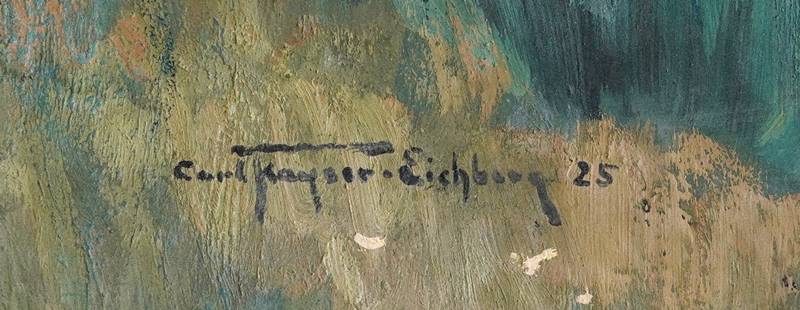 Carl Kayser-Eichberg 25